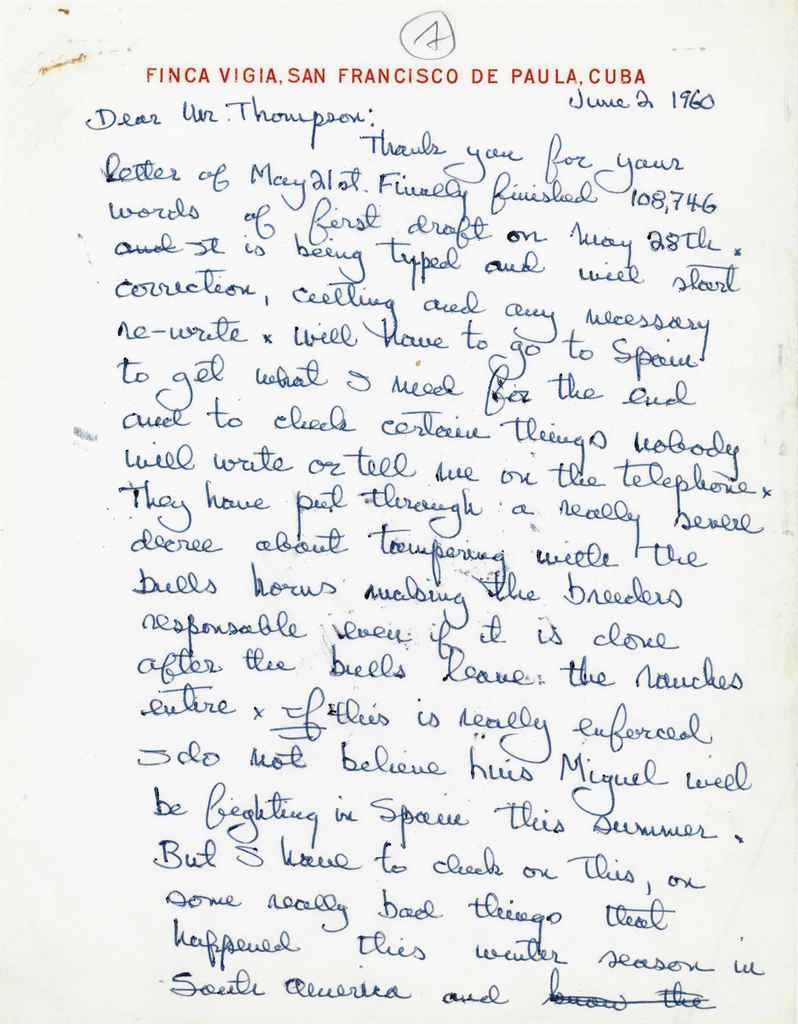 1
FINCA VIGIA, SAN FRANCISCO DE PAULA, CUBA
June 2 1960
Dear Mr. Thompson:
Thank you for your
letter of May 21st. Finally finished 108,746
words of first draft on May 28th.
and It is being typed and will start
correction, cutting and any necessary
re-write x will have to go to Spain
to get what I need for the end
and to check certain things nobody
will write or tell me on the telephone x
They have put through a really severe
decree about tampering with the
bulls horns making the breeders
responsable even if it is done
after the bulls leave the ranches
entire x If this is really enforced
I do not believe Luis Miguel will
be fighting in Spain this summer.
But I have to check on this, on
some really bad things that
happened this winter season in
South America and know the